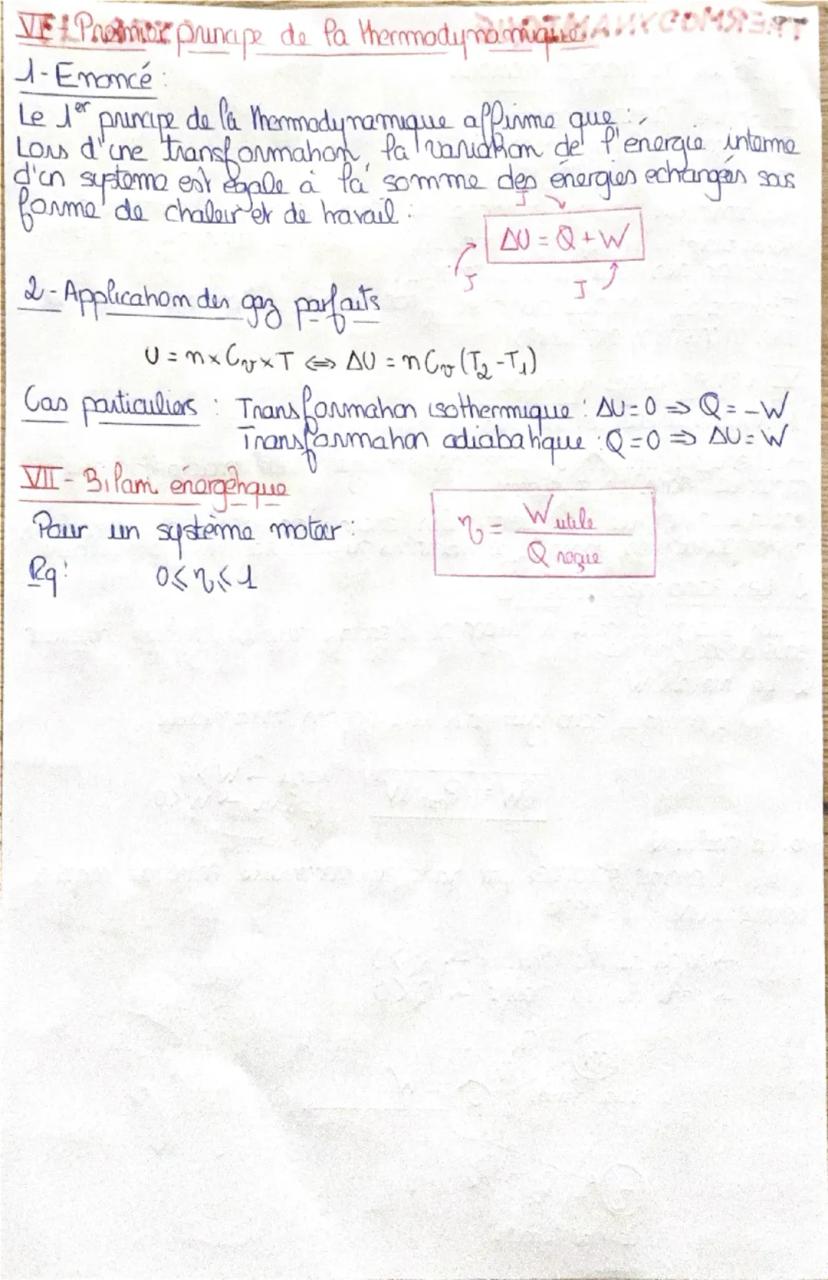 VI - Premier principe de la thermodynamique
1- Enoncé :
Le 1er principe de la thermodynamique affirme que :
Lors d'une transformation, la variation de l'energie interne
d'un systeme est égale à la somme des énergies echangées sous
forme de chaleur et de travail :
J
ΔU = Q + W
J J
2 - Application des gaz parfaits
U = n x Cv x T ⇔ ΔU = n Cv (T2 - T1)
Cas particuliers : Transformation isothermique : ΔU = 0 ⇒ Q = -W
Transformation adiabatique : Q = 0 ⇒ ΔU = W
VII - Bilam energétique
Pour un système moteur :
η = W utile / Q reçue
Rq : 0 ≤ η ≤ 1